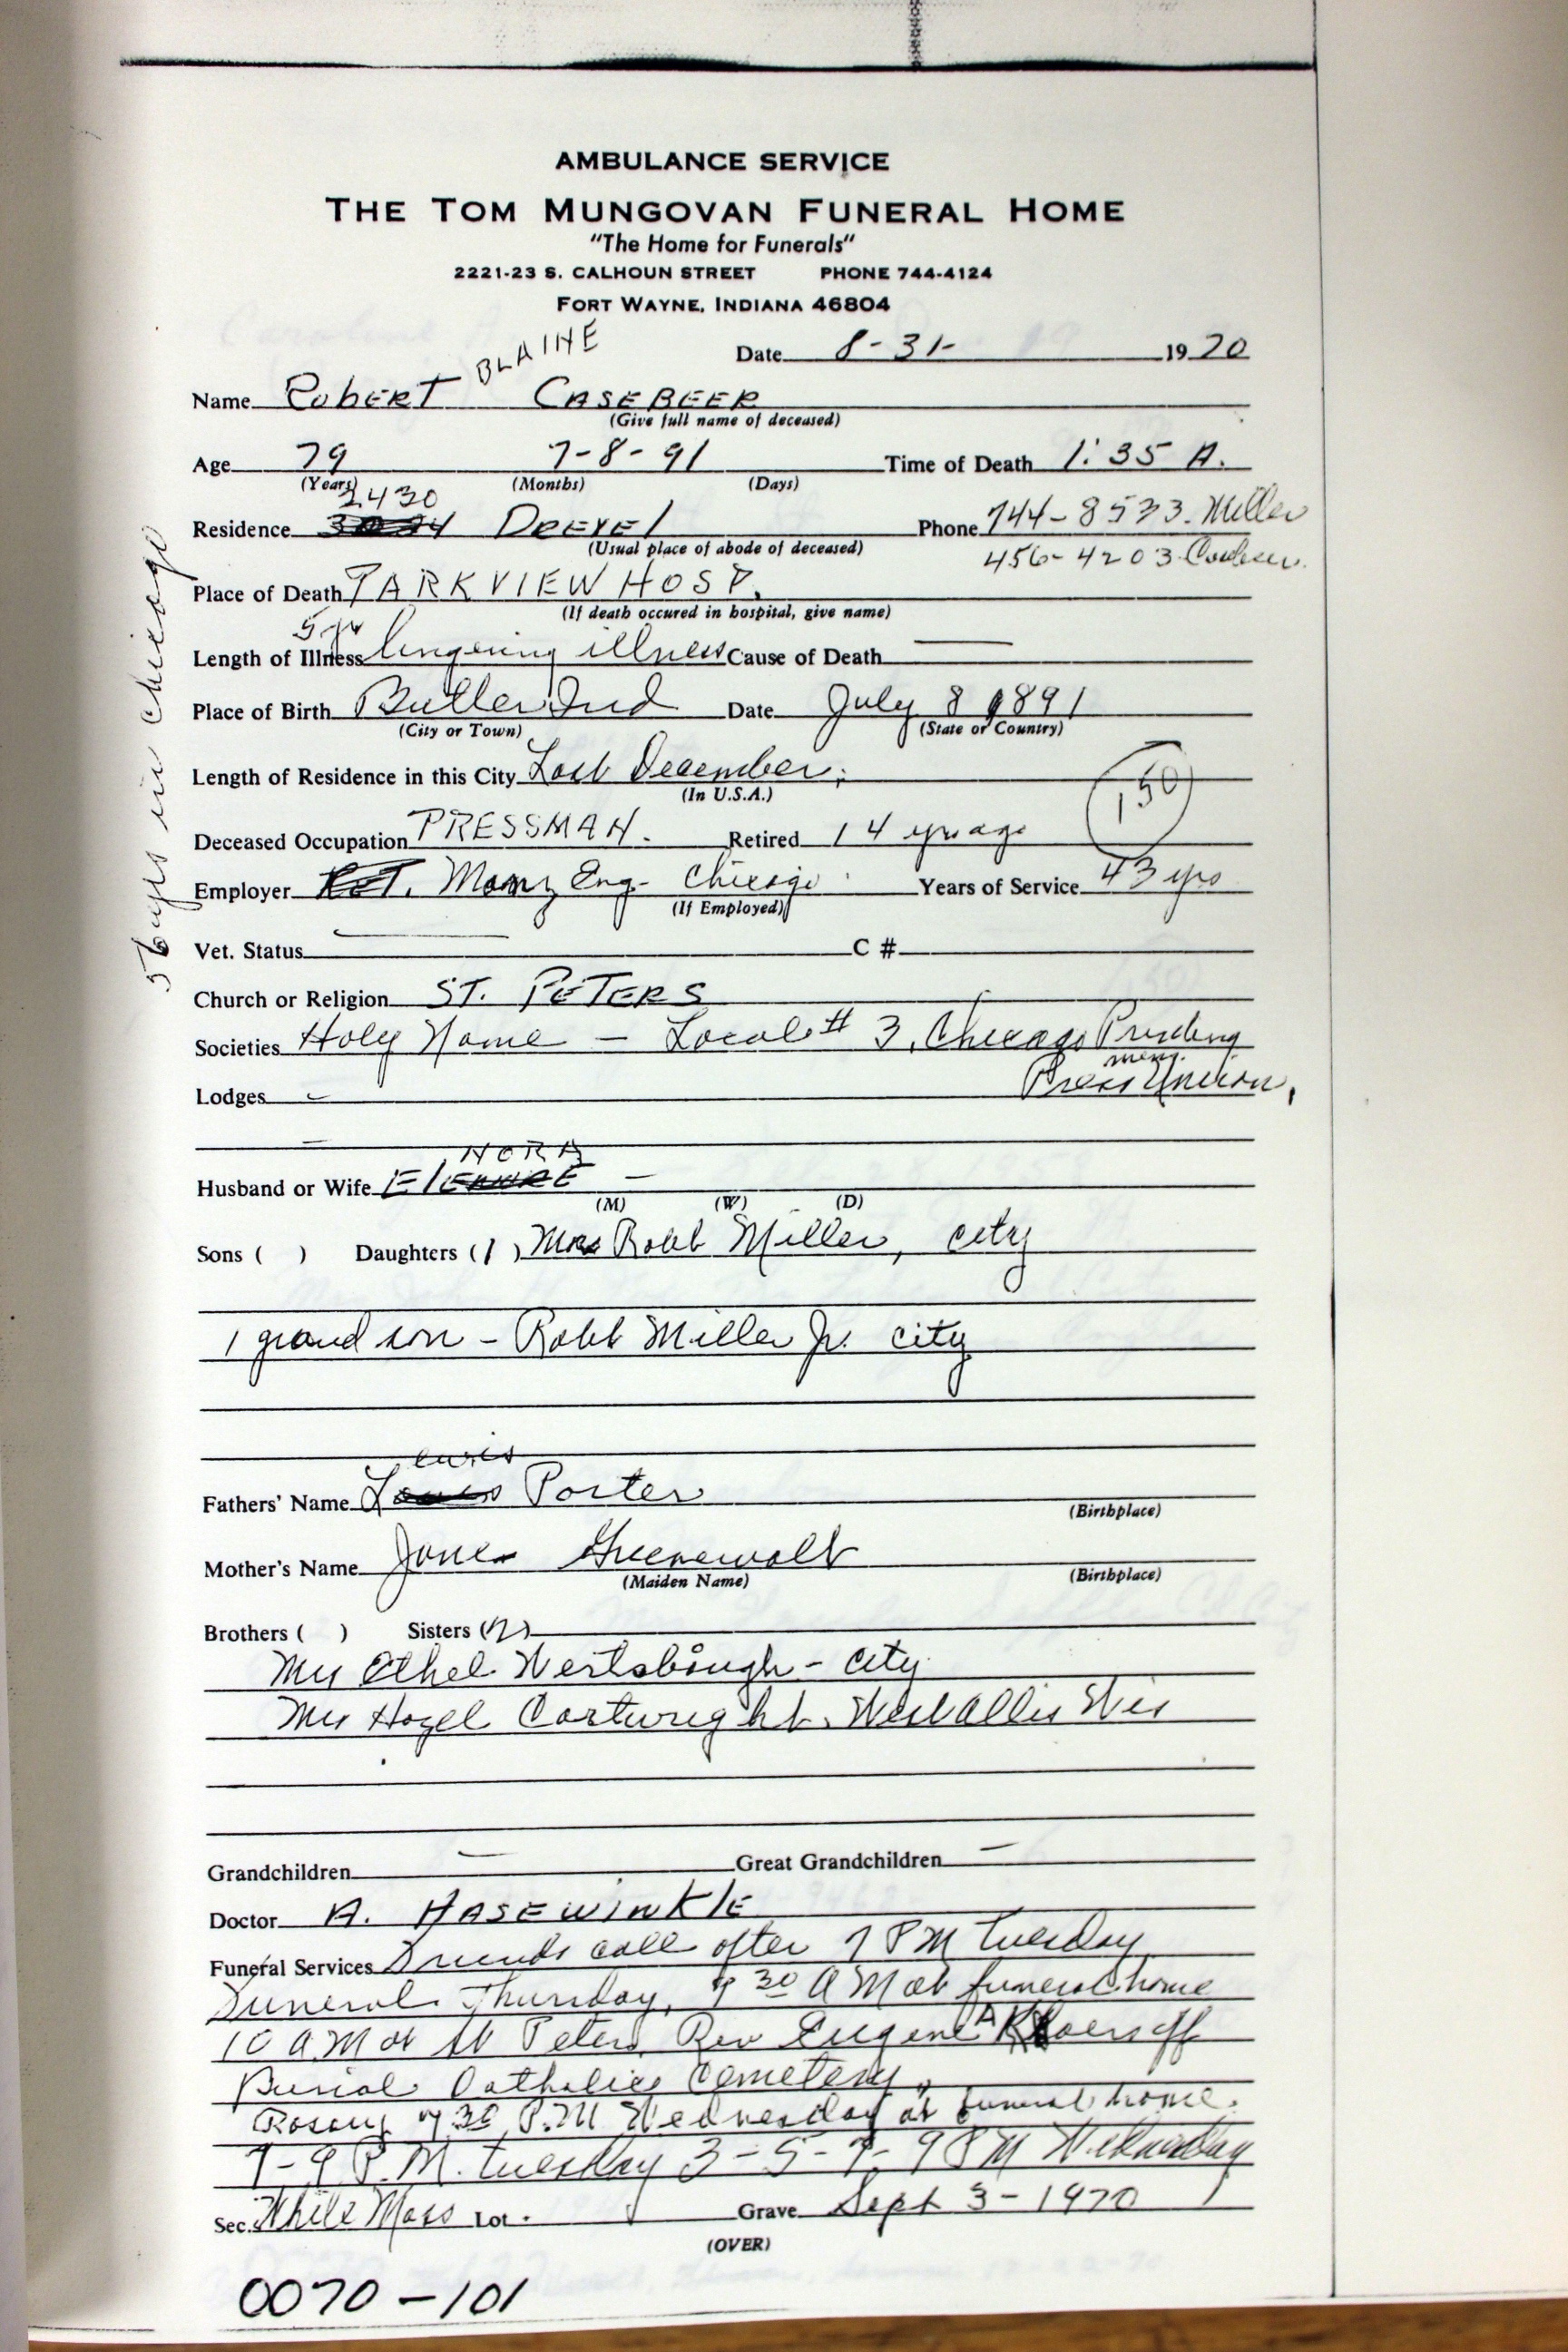 AMBULANCE SERVICE
THE TOM MUNGOVAN FUNERAL HOME
"The Home for Funerals"
2221-23 S. CALHOUN STREET PHONE 744-4124
FORT WAYNE, INDIANA 46804
Date 8-31- 1970
BLAINE
Name ROBERT CASEBEER
(Give full name of deceased)
Age 79 7-8-91 Time of Death 1:35 A.
(Years) (Months) (Days)
2430
Residence DREXEL Phone 744-8533 Miller
(Usual place of abode of deceased) 456-4203
Place of Death PARKVIEW HOSP.
(If death occured in hospital, give name)
5 yr
Length of Illness lingering illness Cause of Death
Place of Birth Butler Ind Date July 8 1891
(City or Town) (State or Country)
Length of Residence in this City Last December
(In U.S.A.)
150
Deceased Occupation PRESSMAN. Retired 14 yrs ago
Employer Eng. Chicago Years of Service 43 yrs
(If Employed)
56 yrs in Chicago
Vet. Status C #
Church or Religion ST. PETERS
Societies Holy Name - Local # 3, Chicago Printing
Press Union,
Lodges
NORA
Husband or Wife Ele
(M) (W) (D)
Sons ( ) Daughters (1) Mrs Robt Miller, city
1 grand son - Robt Miller Jr. city
ewis
Fathers' Name L Porter
(Birthplace)
Mother's Name Jane Greenewalt
(Maiden Name) (Birthplace)
Brothers ( ) Sisters (2)
Mrs Ethel - city
Mrs Hazel Cartwright. West Allis Wis
Grandchildren Great Grandchildren
Doctor A. HASEWINKLE
Funeral Services Friends call after 7 PM Tuesday
Funeral Thursday, 9 30 A M at funeral home
10 A.M at St Peters, Rev Eugene
Burial Catholic Cemetery.
Rosary 7 30 P.M Wednesday at funeral home.
7-9 P.M. Tuesday 3-5-7-9 PM Wednesday
Sec. White Mass Lot Grave Sept 3-1970
(OVER)
0070-101